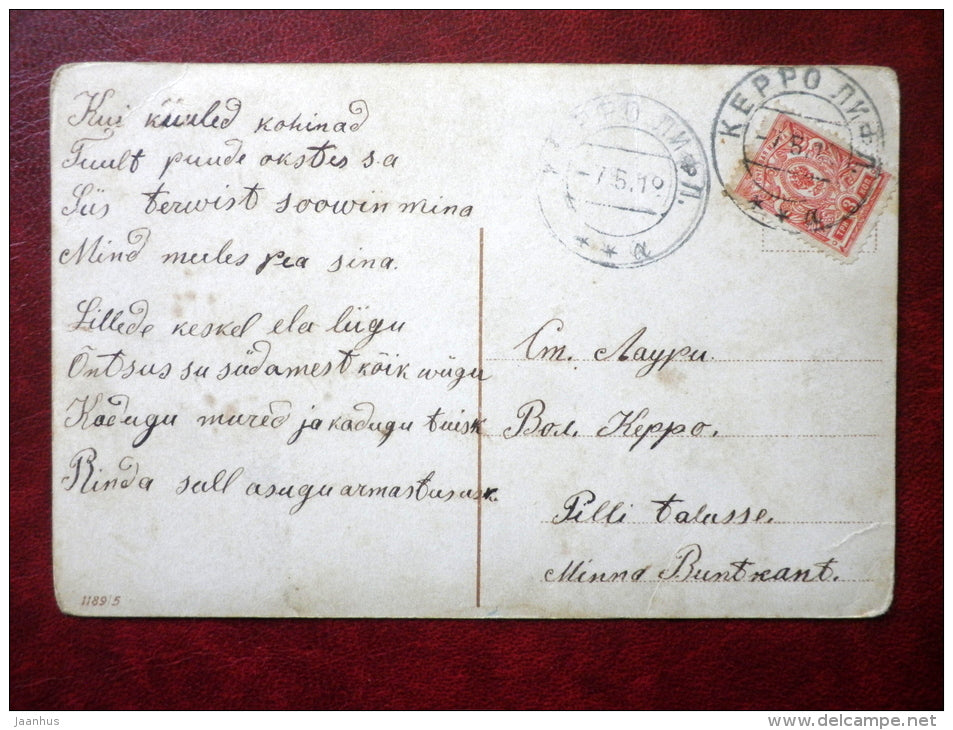 Kui küüled kohinad
Tuult puude okstes sa
Siis terwist soowin mina
Mind meeles pea sina.
Lillede keskel ela liigu
Õntsus su südamest kõik wiigu
Kadugu mured ja kadugu tuisk
Rinda sull asugu armastuse
КЕРРО ЛИФЛ.
-7.5.10
* * а
КЕРРО ЛИФЛ.
* * а
Ст. Лаури.
Вол. Керро.
Pilli talusse.
Minna Buntkant.
1189/5
jaanhus
www.delcampe.net